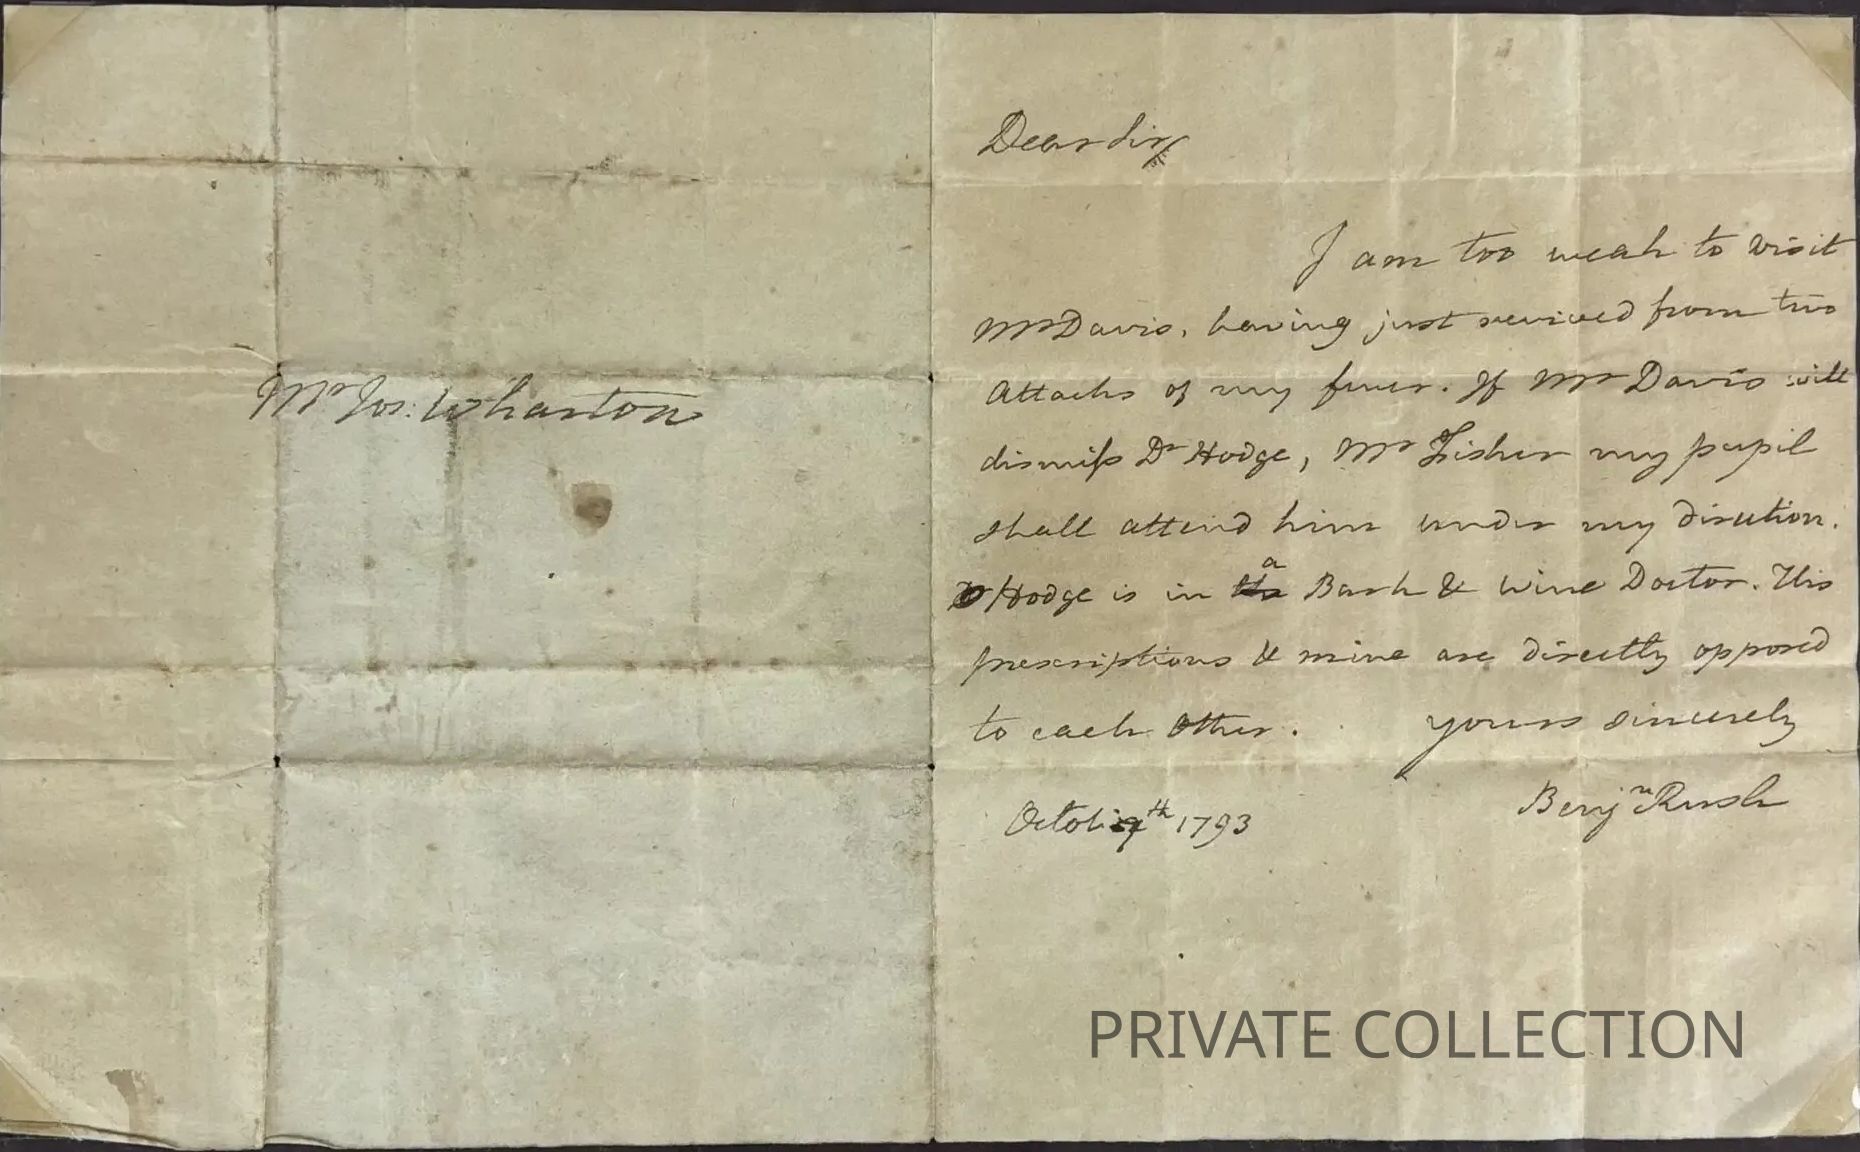 Mr Jos: Wharton
Dear Sir,
I am too weak to visit
Mr Davis, having just revived from two
Attacks of my fever. If Mr Davis will
dismiss Dr Hodge, Mr Fisher my pupil
shall attend him under my direction.
Dr Hodge is in a Bark & Wine Doctor. His
prescriptions & mine are directly opposed
to each Other. yours sincerely
Benjn Rush
1793
PRIVATE COLLECTION